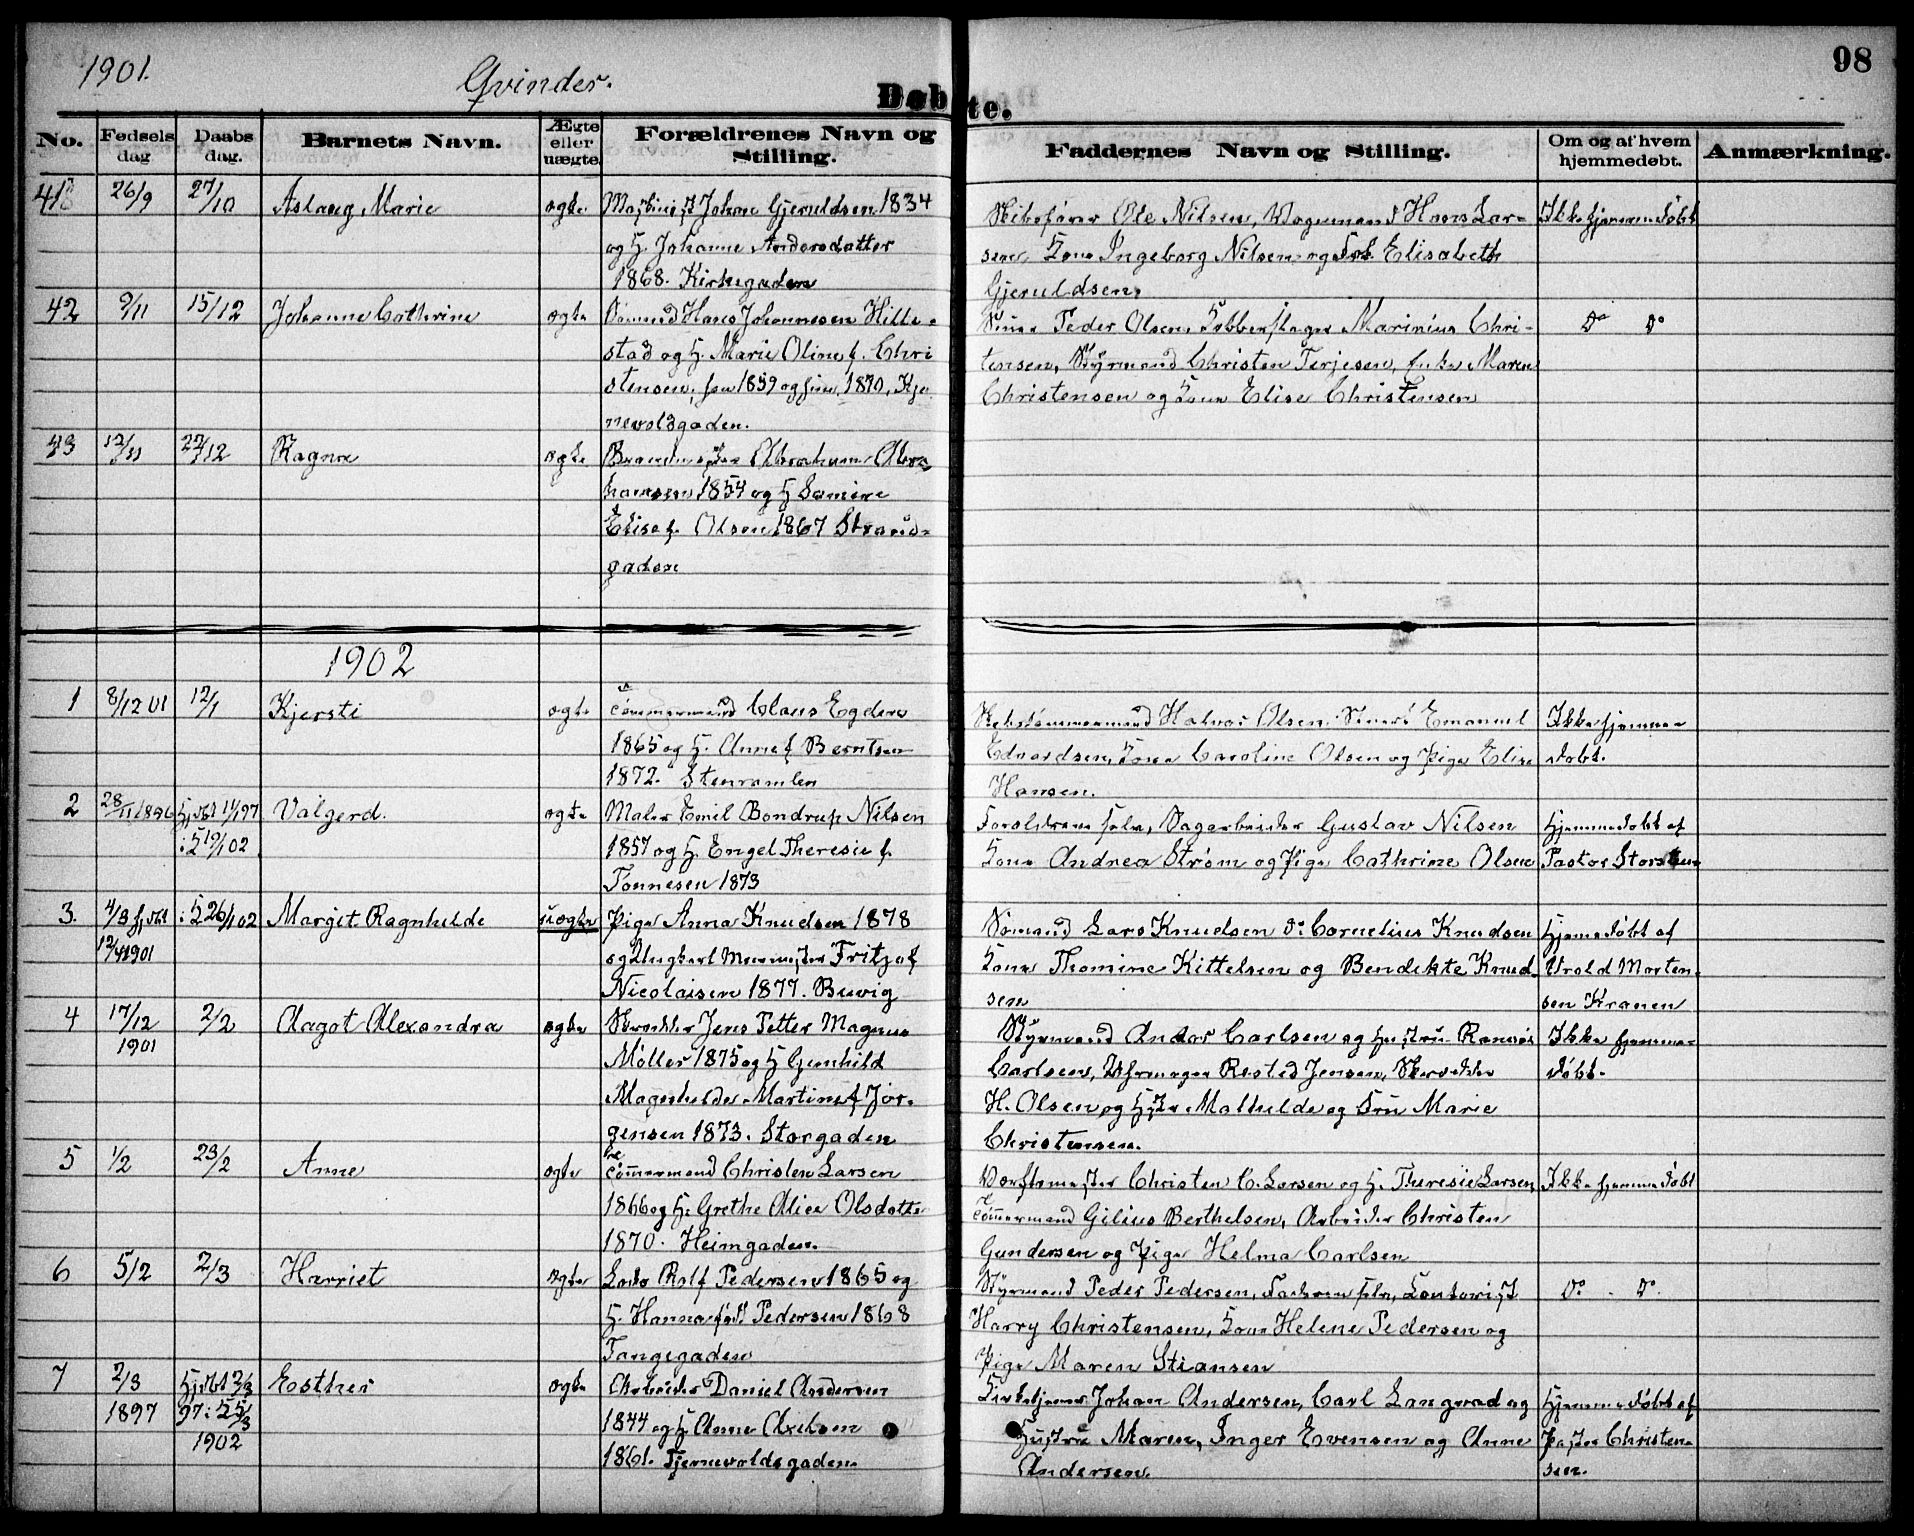 1901.
Qvinder.
98
Døbte.
No.
Fødsels dag
Daabs dag.
Barnets Navn.
Ægte eller uægte.
Forældrenes Navn og Stilling.
Faddernes Navn og Stilling.
Om og af hvem hjemmedøbt.
Anmærkning.
41 26/9 27/10 Aslaug Marie ægte Maskinist Johan Gjeruldsen 1834
og H. Johanne Andersdatter
1868. Kirkegaden
Skibsfører Ole Nilsen, Vognmand Hans Lar-
sen Kone Ingeborg Nilsen og Frk Elisabeth
Gjeruldsen.
Ikke hjemmedøbt
42 9/11 15/12 Johanne Cathrine ægte Sømand Hans Johannesen Hille-
stad og H. Marie Oline f. Chri
stensen, han 1859 og hun 1870, Kje
nevoldsgaden.
Peder Olsen, Marinius Chri-
tensen, Styrmand Christen Terjesen, Enke Maren
Christensen og Kone Elise Christensen
Do Do
43 12/11 22/12 Ragna ægte Brandmester Abraham Abra
hamsen 1854 og H Samine
Elise f. Olsen 1867 Strand-
gaden
1902
1 8/12 01 12/1 Kjersti ægte Tømmermand Claus Egdero
1865 og H. Anne f Berntsen
1872. Stenramlen
Skibstømmermand Halvor Olsen, Stuert Emanuel
Edvardsen, Kone Caroline Olsen og Pige Elise
Hansen.
Ikke hjemme
døbt.
2 28/11 1896 Hjdbt 11/1 97
i K 19/1 02
Valgerd. ægte Maler Emil Bondrup Nilsen
1857 og H. Engel Theresie f.
Tønnesen 1873
Forældrene selv, Sagarbeider Gustav Nilsen
Kone Andrea Strøm og Pige Cathrine Olsen
Hjemmedøbt af
Pastor Storsteen
3. 4/3 hjdbt
12/4 1901
i K 26/1 02 Margit Ragnhilde uægte Pige Anna Knudsen 1878
og Ungkarl Murmester Fritjof
Nicolaisen 1877. Buvig
Sømand Lars Knudsen Do Cornelius Knudsen
Kone Thomine Kittelsen og Bendikte Knud-
sen
Hjemmedøbt af
Urold Morten-
sen Kranen
4 17/12
1901
2/2 Aagot Alexandra ægte Skrædder Jens Petter Magnus
Møller 1875 og H Gunhild
Magnhilde Martine f Jør-
gensen 1873. Storgaden
Styrmand Andor Carlsen og Hustru Ranveig
Carlsen, Uhrmager Rested Jensen, Skrædder
H. Olsen og Hstr Mathilde og Fru Marie
Christensen.
Ikke hjemme-
døbt.
5 1/2 23/2 Anne ægte Tømmermand Christen Larsen
1866 og H. Grethe Alice Olsdatte
1870. Heimgaden.
Værftsmester Christen C. Larsen og H. Theresie Larsen,
Tømmermand Gilius Berthelsen, Arbeider Christen
Gundersen og Pige Helma Carlsen
Ikke hjemmedøbt
6 5/2 2/3 Harriet ægte Lods Rolf Pedersen 1865 og
H. Hanna født Pedersen 1868
Tangegaden
Styrmand Peder Pedersen, Faderen selv, Kontorist
Harry Christensen, Kone Helene Pedersen og
Pige Maren Stiansen
Do - Do.
7 2/3
1897
Hjdbt 2/3
97 i K 5/3
1902
Esther ægte Arbeider Daniel Andersen
1844 og H Anne Axelsen
1861. Tjernevoldsgaden.
Kirketjener Johan Andersen, Carl Langvad og
Hustru Maren, Inger Evensen og Anne
Andersen.
Hjemmedøbt af
Pastor Christen-
sen.